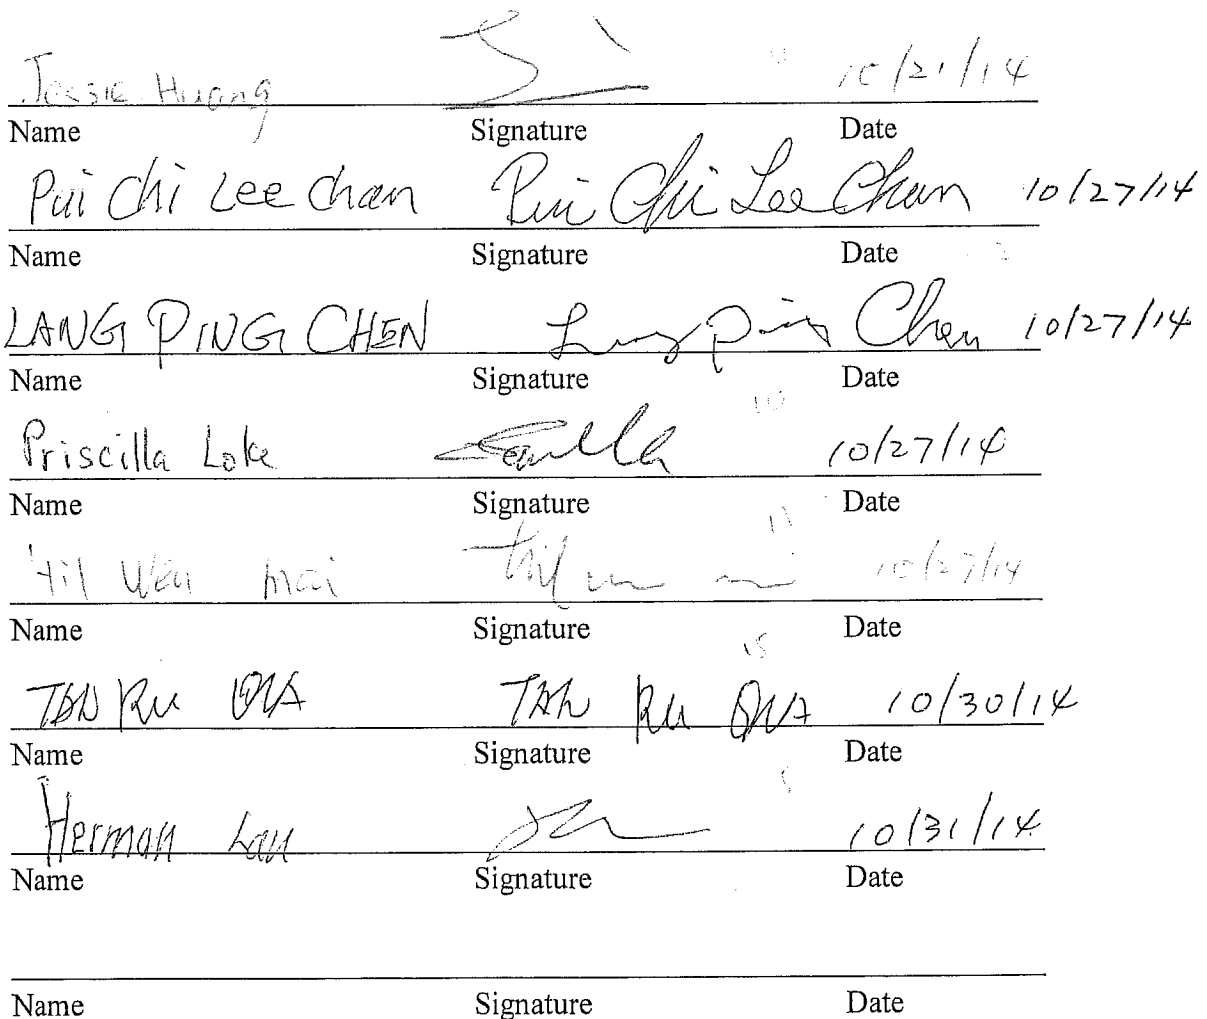 Jessie Huang 10/21/14
Name Signature Date
Pui Chi Lee Chan Pui Chi Lee Chan 10/27/14
Name Signature Date
LANG PING CHEN Lang Ping Chen 10/27/14
Name Signature Date
Priscilla Loke 10/27/14
Name Signature Date
Wen mai 10/27/14
Name Signature Date
TAN RU QUA TAN RU QUA 10/30/14
Name Signature Date
Herman Lau 10/31/14
Name Signature Date
Name Signature Date